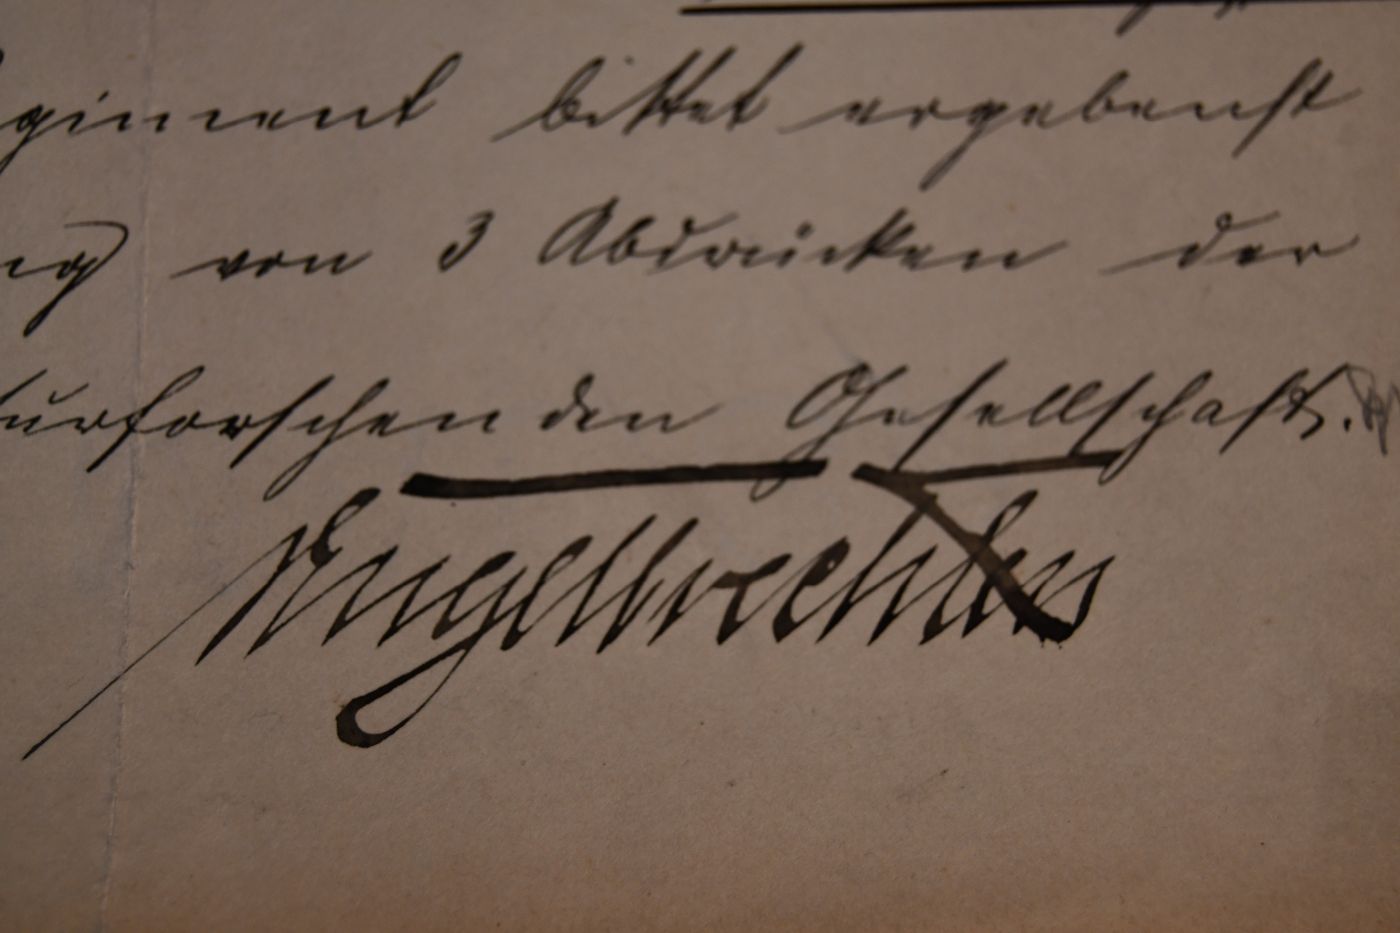 giment bittet ergebenst
ng von 3 Abdrücken der
turforschenden Gesellschaft.
Engelbrechten